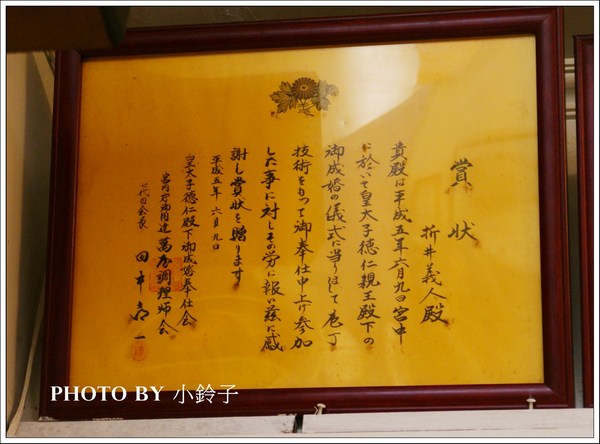 賞状
折井義人殿
貴殿は平成五年六月九日宮中
に於いて皇太子徳仁親王殿下の
御成婚の儀式に当りまして庖丁
技術をもって御奉仕申上げ参加
した事に対しその労に報い茲に感
謝し賞状を贈ります
平成五年六月九日
皇太子徳仁殿下御成婚奉仕会
宮内庁御用達萬屋調理師会
代目会長 田中
PHOTO BY 小鈴子